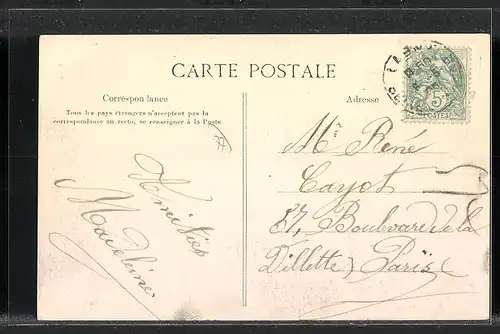 CARTE POSTALE
Correspondance
Tous les pays étrangers n'acceptent pas la
correspondance au recto, se renseigner à la Poste
Amitiés
Madeleine
Adresse
5c
POSTES
Mr René
Cayot
57, Boulevard de la
Villette, Paris